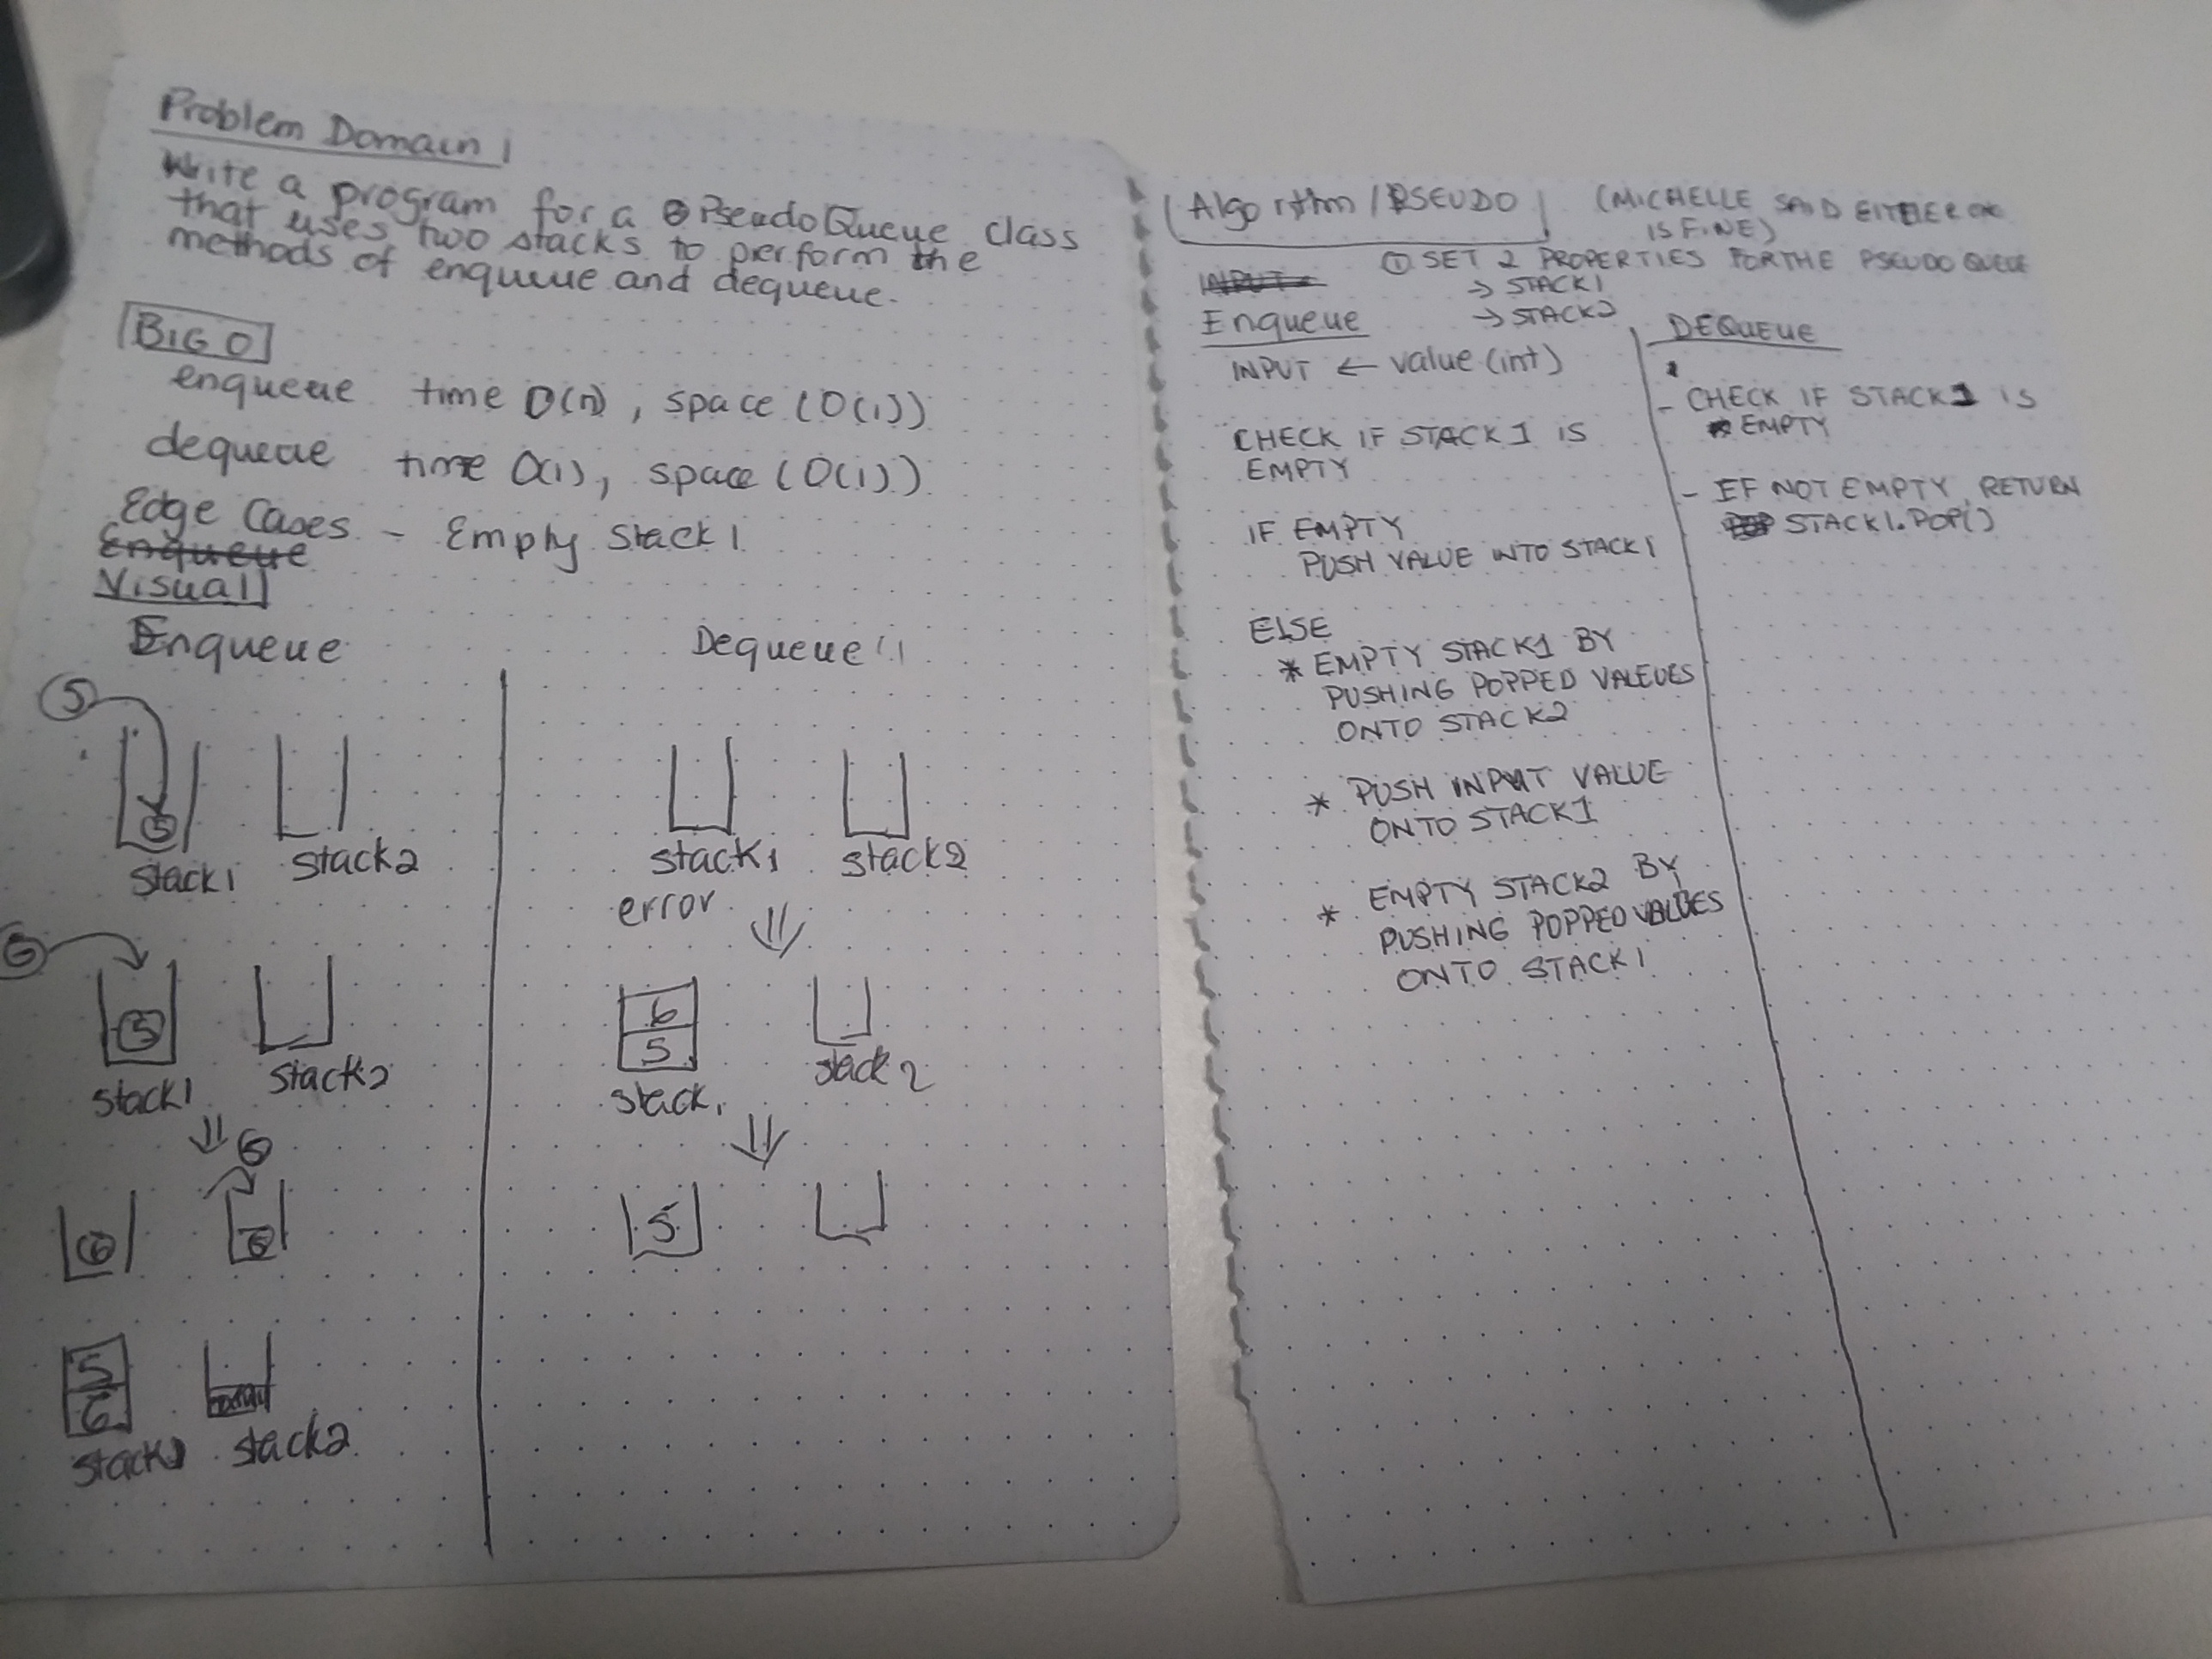 Problem Domain
Write a program for a PseudoQueue class
that uses two stacks to perform the
methods of enqueue and dequeue.
BIG O
enqueue time O(n), space (O(1))
dequeue time O(1), space (O(1))
Edge Cases - Empty Stack 1
Enqueue
Visual
Enqueue
Dequeue
5
5
stack1 stack2
stack1 stack2
error
5
stack1 stack2
6
5
stack1 stack2
6
5
5
6
stack2
Algorithm / PSEUDO (MICHELLE SAID EITHER OR
IS FINE)
① SET 2 PROPERTIES FOR THE PSEUDO QUEUE
→ STACK1
→ STACK2
INPUT
Enqueue
INPUT ← value (int)
CHECK IF STACK1 IS
EMPTY
IF EMPTY
PUSH VALUE INTO STACK1
ELSE
* EMPTY STACK1 BY
PUSHING POPPED VALEUES
ONTO STACK2
* PUSH INPUT VALUE
ONTO STACK1
* EMPTY STACK2 BY
PUSHING POPPED VALUES
ONTO STACK1
DEQUEUE
- CHECK IF STACK1 IS
EMPTY
- IF NOT EMPTY, RETURN
STACK1.POP()